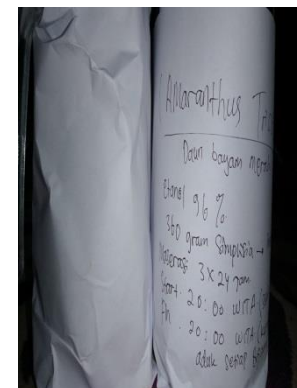 Amaranthus Tri
Daun bayam merah
Etanol 96 %
360 gram Simplisia →
Maserasi 3 x 24 jam
Start : 20:00 WITA
Fn : 20:00 WITA
aduk setiap